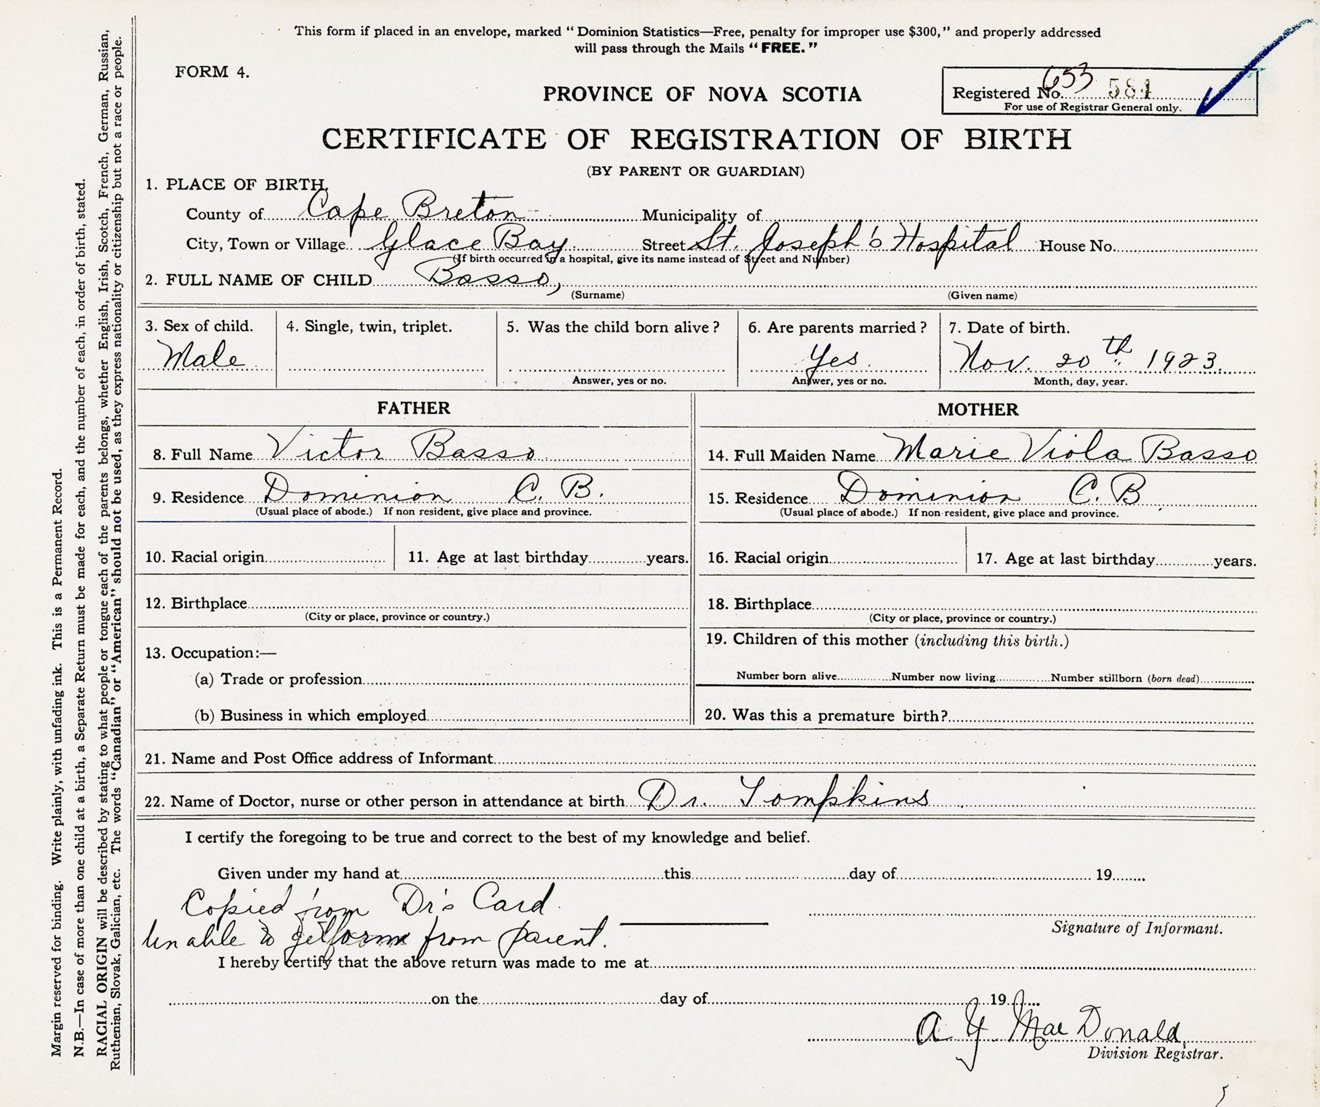 This form if placed in an envelope, marked "Dominion Statistics—Free, penalty for improper use $300," and properly addressed
will pass through the Mails "FREE."
FORM 4.
653
Registered No. 584
For use of Registrar General only.
PROVINCE OF NOVA SCOTIA
CERTIFICATE OF REGISTRATION OF BIRTH
(BY PARENT OR GUARDIAN)
1. PLACE OF BIRTH,
County of Cape Breton Municipality of
City, Town or Village Glace Bay Street St. Joseph's Hospital House No.
(If birth occurred in a hospital, give its name instead of Street and Number)
2. FULL NAME OF CHILD Basso,
(Surname) (Given name)
3. Sex of child. 4. Single, twin, triplet. 5. Was the child born alive? 6. Are parents married? 7. Date of birth.
Male Yes Nov. 20th 1923.
Answer, yes or no. Answer, yes or no. Month, day, year.
FATHER MOTHER
8. Full Name Victor Basso 14. Full Maiden Name Marie Viola Basso
9. Residence Dominion C. B. 15. Residence Dominion C. B
(Usual place of abode.) If non resident, give place and province. (Usual place of abode.) If non-resident, give place and province.
10. Racial origin 11. Age at last birthday years. 16. Racial origin 17. Age at last birthday years.
12. Birthplace 18. Birthplace
(City or place, province or country.) (City or place, province or country.)
19. Children of this mother (including this birth.)
13. Occupation:—
(a) Trade or profession Number born alive Number now living Number stillborn (born dead)
(b) Business in which employed 20. Was this a premature birth?
21. Name and Post Office address of Informant
22. Name of Doctor, nurse or other person in attendance at birth Dr. Tompkins
I certify the foregoing to be true and correct to the best of my knowledge and belief.
Given under my hand at this day of 19
Copied from Dr's Card
Signature of Informant.
Unable to get form from parent.
I hereby certify that the above return was made to me at
on the day of 19
A. Y. MacDonald,
Division Registrar.
Margin reserved for binding. Write plainly, with unfading ink. This is a Permanent Record.
N.B.—In case of more than one child at a birth, a Separate Return must be made for each, and the number of each, in order of birth, stated.
RACIAL ORIGIN will be described by stating to what people or tongue each of the parents belongs, whether English, Irish, Scotch, French, German, Russian,
Ruthenian, Slovak, Galician, etc. The words "Canadian" or "American" should not be used, as they express nationality or citizenship but not a race or people.